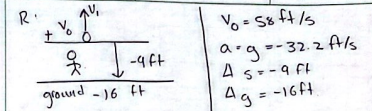 R:
+ V₀ V₁
-9 ft
ground -16 ft
V₀ = 58 ft/s
a = g = -32.2 ft/s
Δ s = -9 ft
Δ g = -16ft